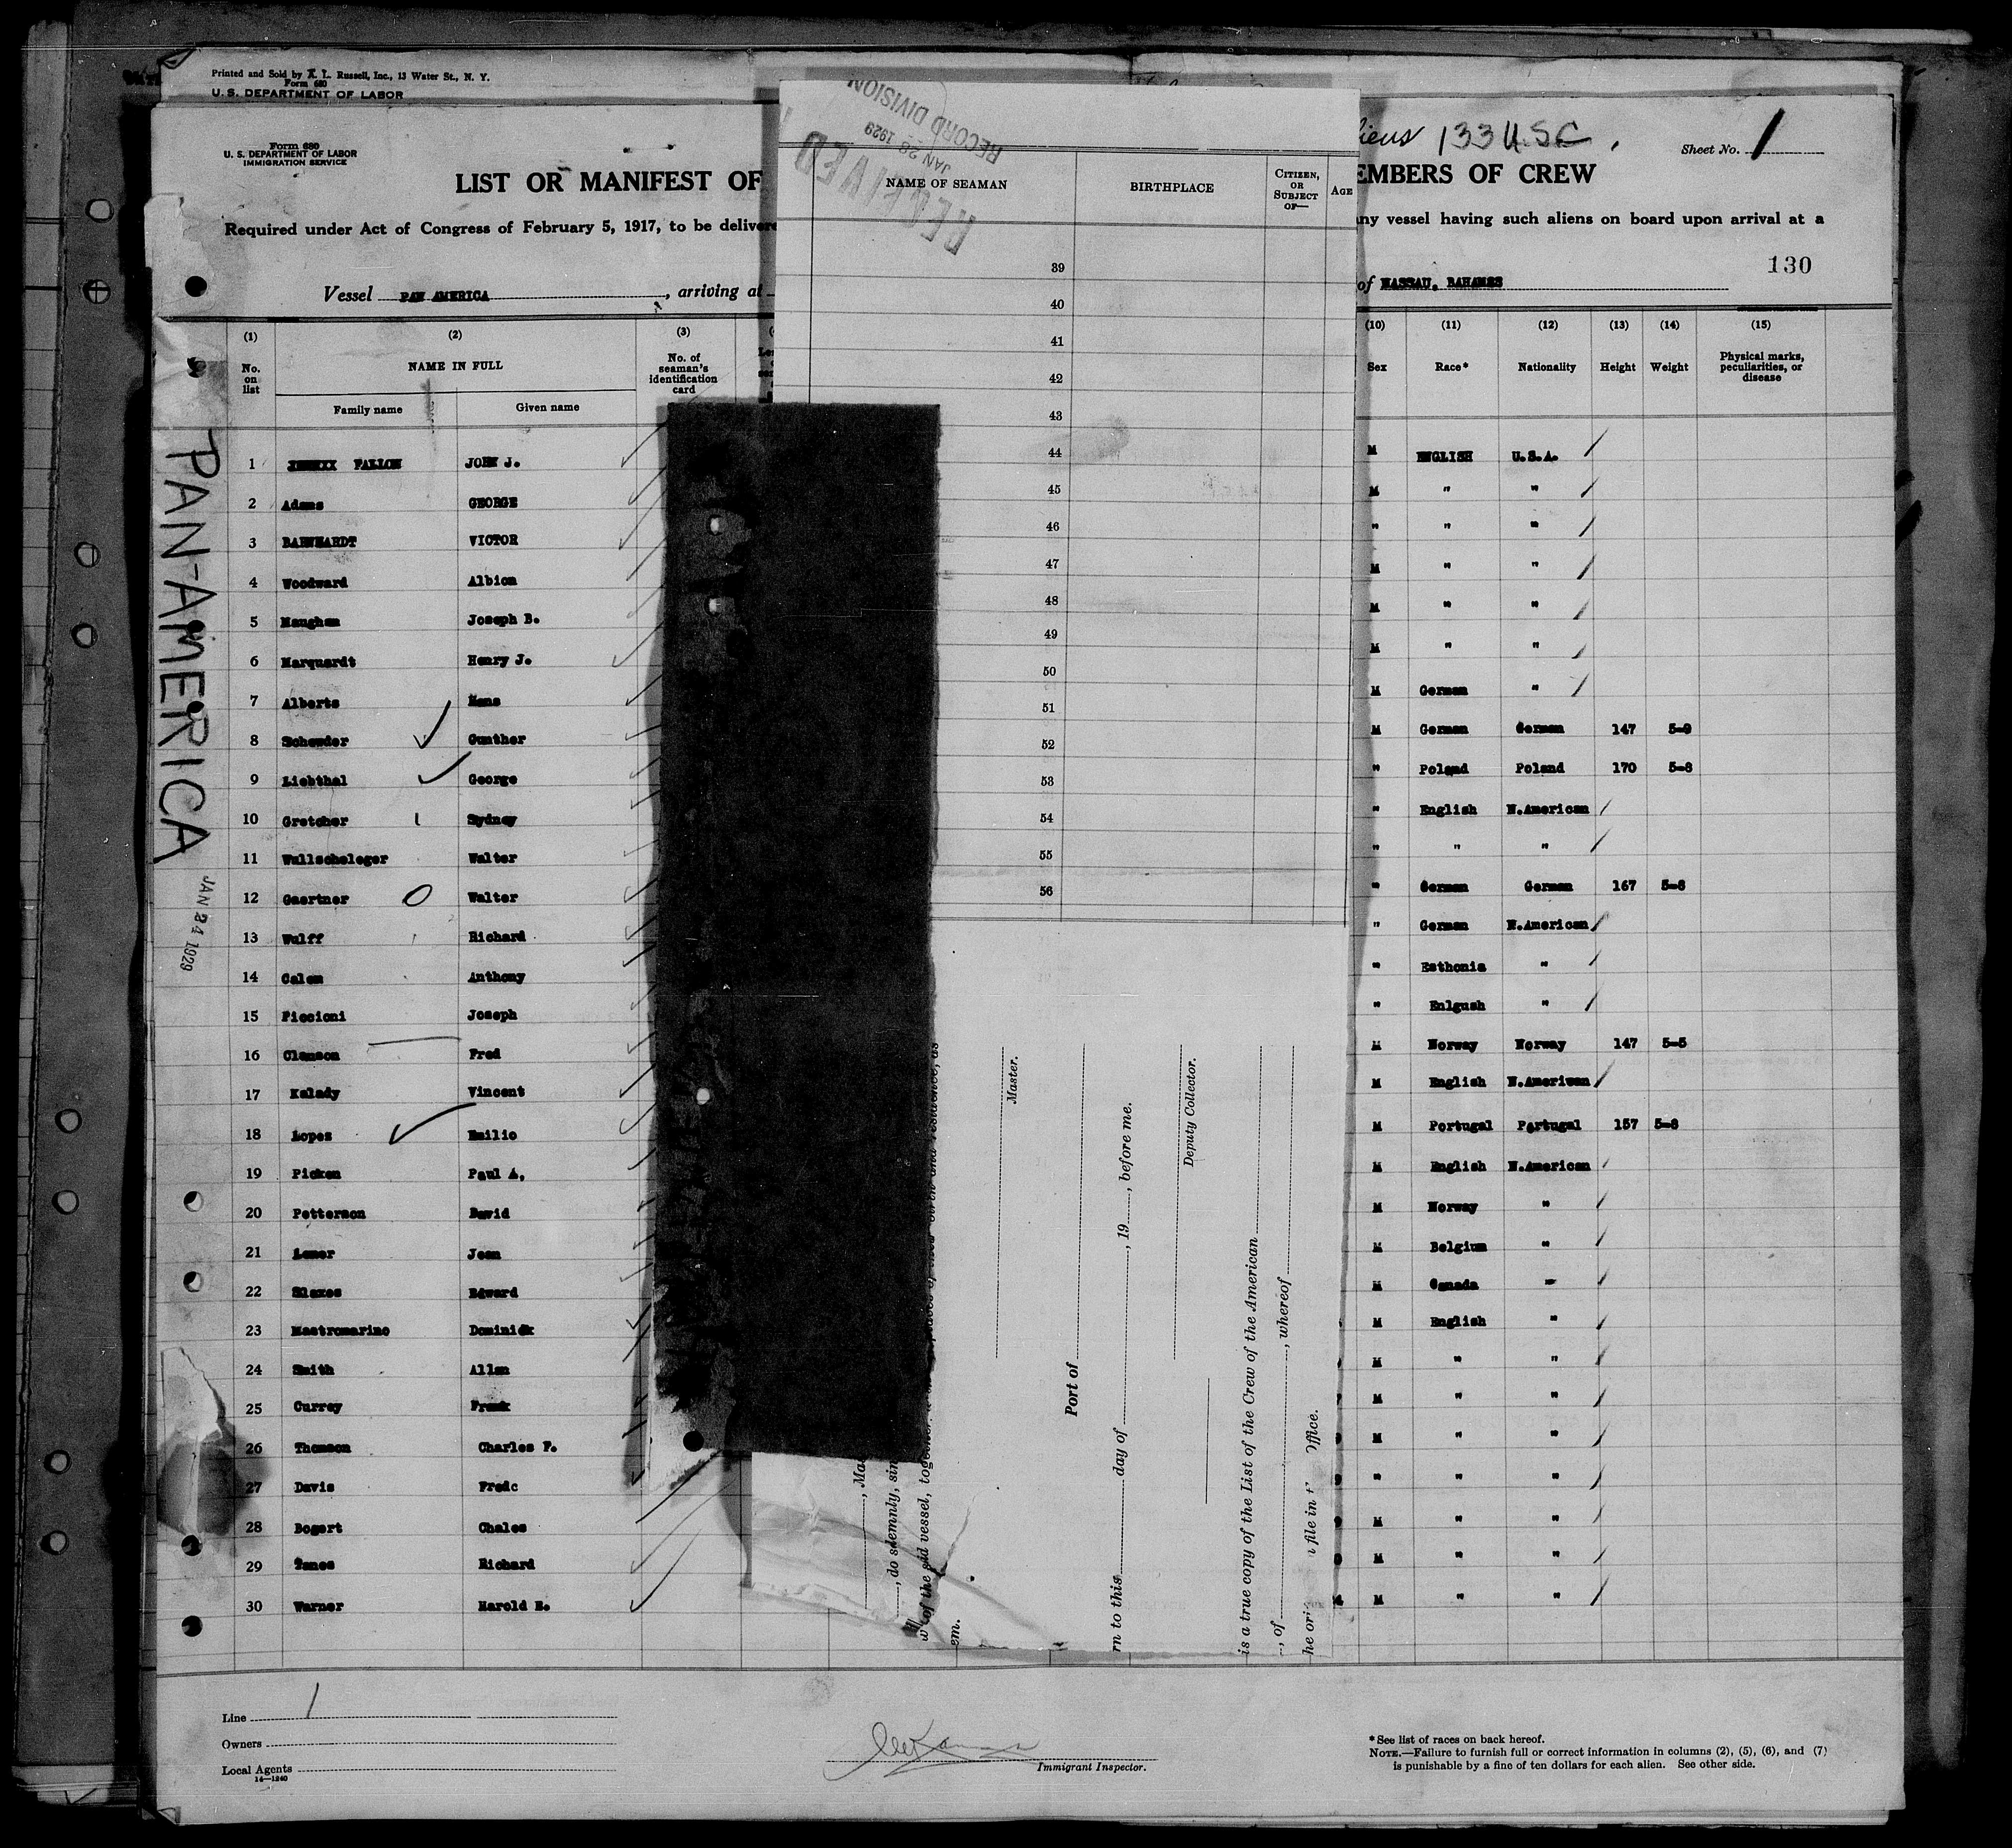 Printed and Sold by A. L. Russell, Inc., 13 Water St., N. Y.
Form 680
U. S. DEPARTMENT OF LABOR
Form 680
U. S. DEPARTMENT OF LABOR
IMMIGRATION SERVICE
133 U.S.C.
Sheet No. 1
LIST OR MANIFEST OF
EMBERS OF CREW
Required under Act of Congress of February 5, 1917, to be delivere
ny vessel having such aliens on board upon arrival at a
130
Vessel PAN AMERICA, arriving at
of NASSAU, BAHAMAS
RECEIVED
JAN 28 1929
RECORD DIVISION
NAME OF SEAMAN BIRTHPLACE CITIZEN, OR SUBJECT OF— AGE
39
40
41
42
43
44
45
46
47
48
49
50
51
52
53
54
55
56
(1) (2) (3) (10) (11) (12) (13) (14) (15)
No. on list NAME IN FULL No. of seaman's identification card Sex Race* Nationality Height Weight Physical marks, peculiarities, or disease
Family name Given name
1 FALLON JOHN J. M ENGLISH U.S.A.
2 Adams GEORGE M " "
3 BARNHARDT VICTOR " " "
4 Woodward Albion M " "
5 Maughan Joseph B. M " "
6 Marquardt Henry J. M " "
7 Alberts Hans M German "
8 Schewder Gunther M German German 147 5-9
9 Liebthal George " Poland Poland 170 5-8
10 Gretcher Sydney " English N.American
11 Wullscheleger Walter " " "
12 Gaertner Walter " German German 167 5-8
13 Wulff Richard " German N.American
14 Calem Anthony " Esthonia "
15 Piccioni Joseph " Enlgush "
16 Clemson Fred M Norway Norway 147 5-5
17 Kalady Vincent M English N.Amerivan
18 Lopez Emilio M Portugal Portugal 157 5-8
19 Picken Paul A, M English N.American
20 Petterson David M Norway "
21 Lemer Jean M Belgium "
22 Slaxes Edward M Canada "
23 Mastromarino Dominick M English "
24 Smith Allan M " "
25 Currey Frank M " "
26 Thomson Charles F. M " "
27 Davis Fredc " " "
28 Bogart Chales M " "
29 Tanes Richard M " "
30 Warner Harold E. M " "
PAN-AMERICA
JAN 24 1929
Master.
Port of
day of , 19 , before me.
rn to this
Deputy Collector.
is a true copy of the List of the Crew of the American
, of , whereof
he ori file in t Office.
, do solemnly, sin
w of the said vessel, together
em.
Line 1
Owners
Local Agents
14—1240
Immigrant Inspector.
* See list of races on back hereof.
NOTE.—Failure to furnish full or correct information in columns (2), (5), (6), and (7)
is punishable by a fine of ten dollars for each alien. See other side.